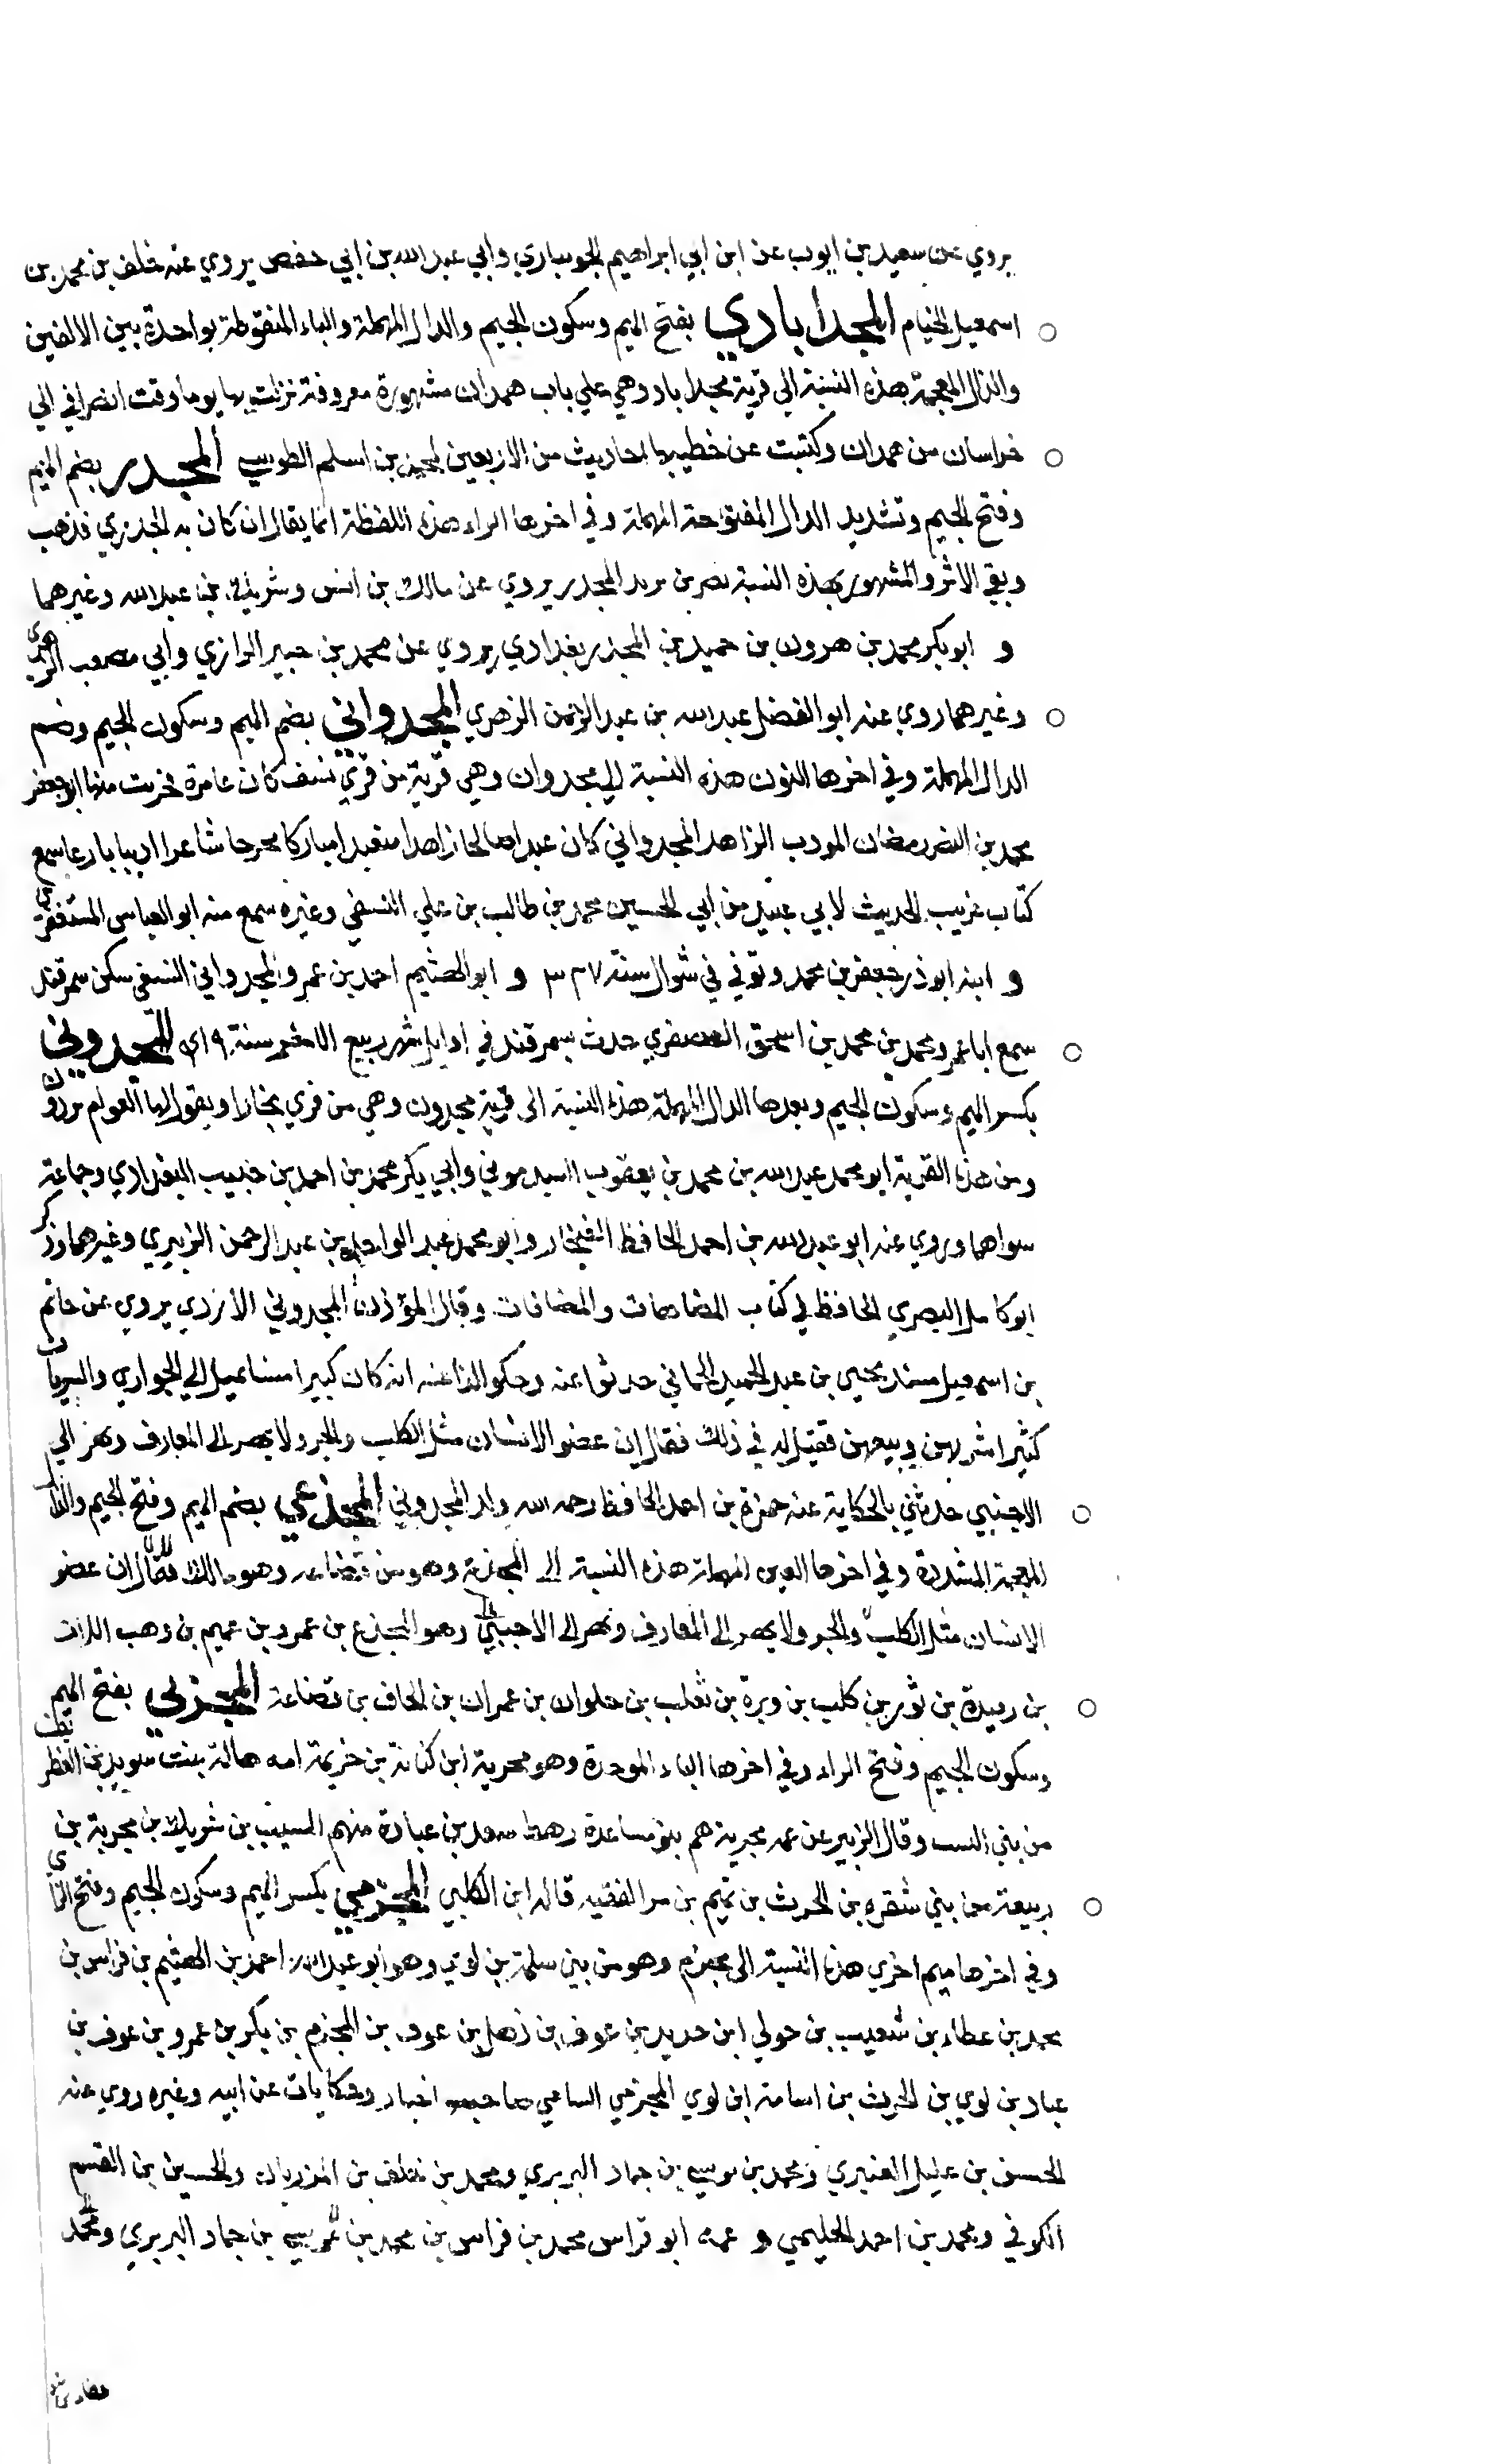 يروي عن سعيد بن ايوب عن ابن ابي ابراهيم الجوسباري وابي عبد الله بن ابي حفص يروي عنه خلف بن محمد بن
اسمعيل الخيام المجدابادي بفتح الميم وسكون الجيم والدال المهملة والباء المنقوطة بواحدة بين الالفين
والذال المعجمة هذه النسبة الي قرية مجداباد وهي علي باب همدان مشهورة معروفة نزلت بها يوما وقت انصرافي الي
خراسان من همدان وكتبت عن خطيبها احاديث من الاربعين لمحمد بن اسلم الطوسي المجدر بضم الميم
وفتح الجيم وتشديد الدال المفتوحة المهملة وفي اخرها الراء هذه اللفظة انما يقال ان كان به الجدري فذهب
وبقي الاثر والمشهور بهذه النسبة نصر بن يزيد المجدر يروي عن مالك بن انس وشريك بن عبد الله وغيرهما
و ابو بكر محمد بن هرون بن حميد بن المجدر بغدادي يروي عن محمد بن حميد الرازي وابي مصعب الزهري
وغيرهما روي عنه ابو الفضل عبد الله بن عبد الرحمن الزهري المجدواني بضم الميم وسكون الجيم وضم
الدال المهملة وفي اخرها النون هذه النسبة الي مجدوان وهي قرية من قري نسف كان عامرة فخربت منها ابو جعفر
محمد بن النضر رمضان المودب الزاهد المجدواني كان عبدا صالحا زاهدا متعبدا مباركا مخرجا شاعرا اديبا بارعا سمع
كتاب غريب الحديث لابي عبيد من ابي الحسين محمد بن طالب بن علي النسفي وغيره سمع منه ابو العباس المستغفري
و ابنه ابو ذر جعفر بن محمد وتوفي في شوال سنة ٣٧٧ و ابو الهيثم احمد بن عمرو المجدواني النسفي سكن سمرقند
سمع ابا عمرو محمد بن محمد بن اسحق العصفري حدث بسمرقند في اوايل شهر ربيع الاخر سنة المجدوني
بكسر الميم وسكون الجيم وبعدها الدال المهملة هذه النسبة الي قرية مجدون وهي من قري بخارا ويقول لها العوام مزدون
ومن هذه القرية ابو محمد عبد الله بن محمد بن يعقوب السبذموني وابي بكر محمد بن احمد بن خنب البغدادي وجماعة
سواهما وروي عنه ابو عبد الله بن احمد الحافظ الغنجار وابو محمد عبد الواحد بن عبد الرحمن الزبيري وغيرهما وذكر
ابو كامل البصري الحافظ في كتاب المضاهات والمضافات وقال المؤذن المجدوني الازدي يروي عن حاتم
بن اسمعيل مسند يحيي بن عبد الحميد الحماني حدثوا عنه وحكوا لنا عنه انه كان كبيرا مسنا يميل الي الجواري والسريات
كثيرا شربهن ويبيعهن فقيل له في ذلك فقال ان عضو الانسان مثل الكلب والجرو لا يهر الي المعارف ويهر الي
الاجنبي حدثني بالحكاية عنه حمزة بن احمد الحافظ رحمه الله والد المجدوني المجذعي بضم الميم وفتح الجيم والذال
المعجمة المشددة وفي اخرها العين المهملة هذه النسبة الي المجذعة وهو من قضاعة وهو مالك فقال ان عضو
الانسان مثل الكلب والجرو لا يهر الي المعارف ويهر الي الاجنبي وهو المجذع بن عمرو بن عميم بن وهب اللات
بن رفيدة بن ثور بن كلب بن وبرة بن تغلب بن حلوان بن عمران بن الحاف بن قضاعة المجربي بفتح الميم
وسكون الجيم وفتح الراء وفي اخرها الباء الموحدة وهو مجربة ابن كنانة بن خزيمة امه هالة بنت سويد بن الغطريف
من بني النبت وقال الزبير عن عمه مجربة هم بنو ساعدة رهط سعد بن عبادة منهم المسيب بن شريك بن مجربة بن
ربيعة من بني شقرة بن الحرث بن تميم بن مر الفقيه قاله ابن الكلبي المجزمي بكسر الميم وسكون الجيم وفتح الزاي
وفي اخرها ميم اخري هذه النسبة الي مجزم وهو من بني سلمة بن لوي وهو ابو عبد الله احمد بن الهيثم بن فراس بن
محمد بن عطاء بن شعيب بن خولي ابن حديد بن عوف بن ذهل بن عوف بن المجزم بن بكر بن عمرو بن عوف بن
عباد بن لوي بن الحرث بن اسامة ابن لوي المجزمي السامي صاحب اخبار وحكايات عن ابيه وغيره روي عنه
الحسن بن عليل العنبري ومحمد بن موسي بن حماد البربري ومحمد بن خلف بن المرزبان والحسين بن القسم
الكوفي ومحمد بن احمد الحليمي و عمه ابو فراس محمد بن فراس بن محمد بن موسي بن حماد البربري ومحمد